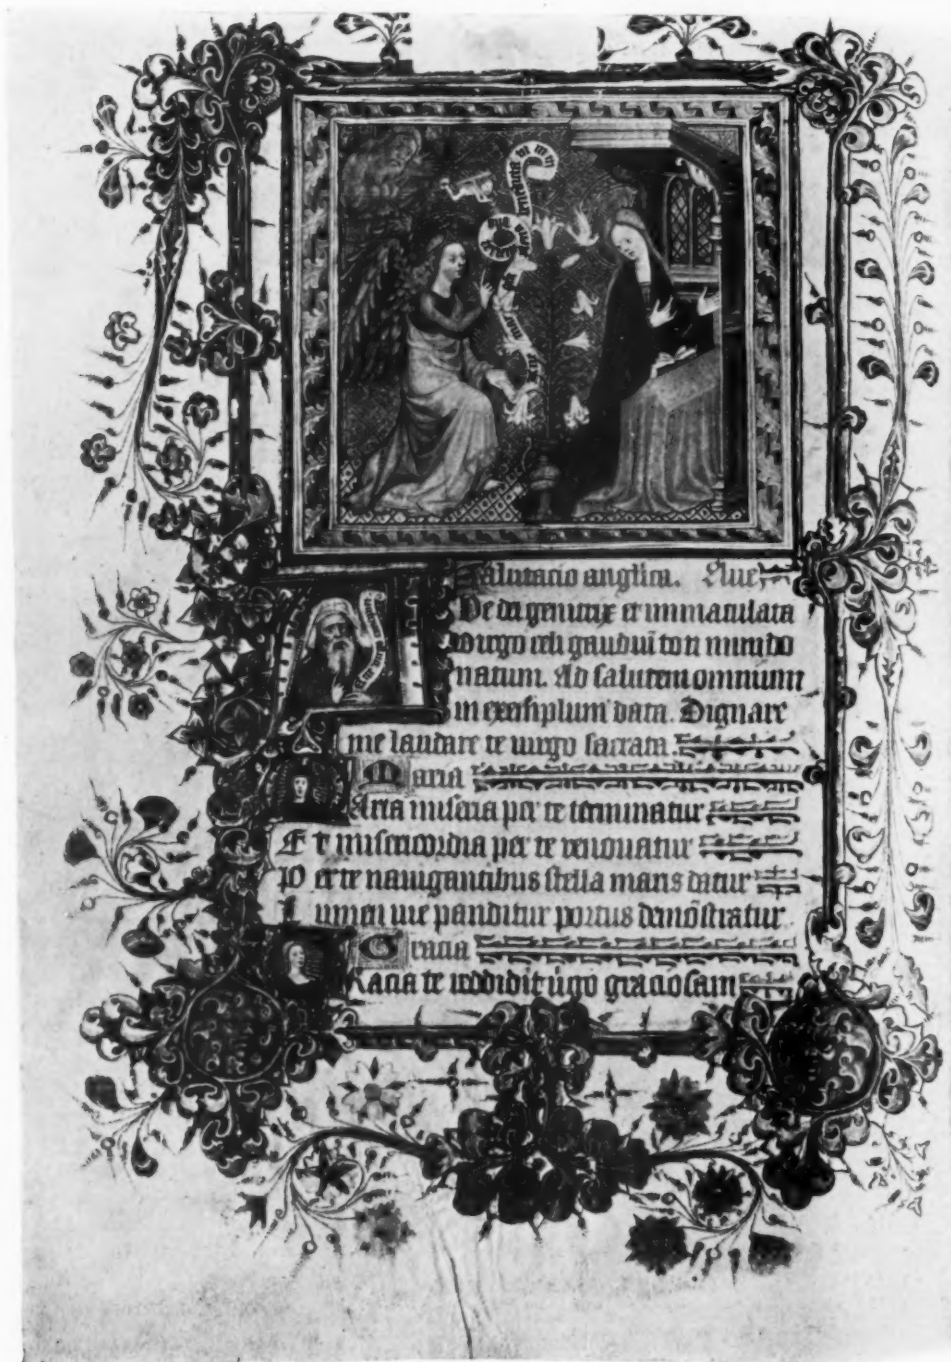 Salutacio anglica. Aue
Ue dei genitrix et immaculata
uirgo celi gaudiū toti mundo
natum. Ad salutem omnium
in exemplum data. Dignare
me laudare te uirgo sacrata.
Maria
Arta miseria per te terminatur
Et misericordia per te renouatur
Per te nauigantibus stella maris datur
Lumen uie panditur portus demōstratur
Gracia
Racia te reddidit uirgo graciosam